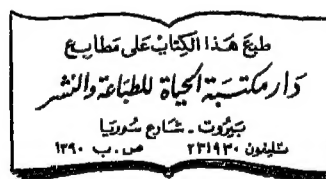 طبع هَذا الكِتابْ عَلى مَطابع
دَار مكتبَة الحياة للطباعَة والنشر
بَيروت - شارع سُوريَا
تليفون ٢٣١٩٣٠ ص. ب ١٣٩٠